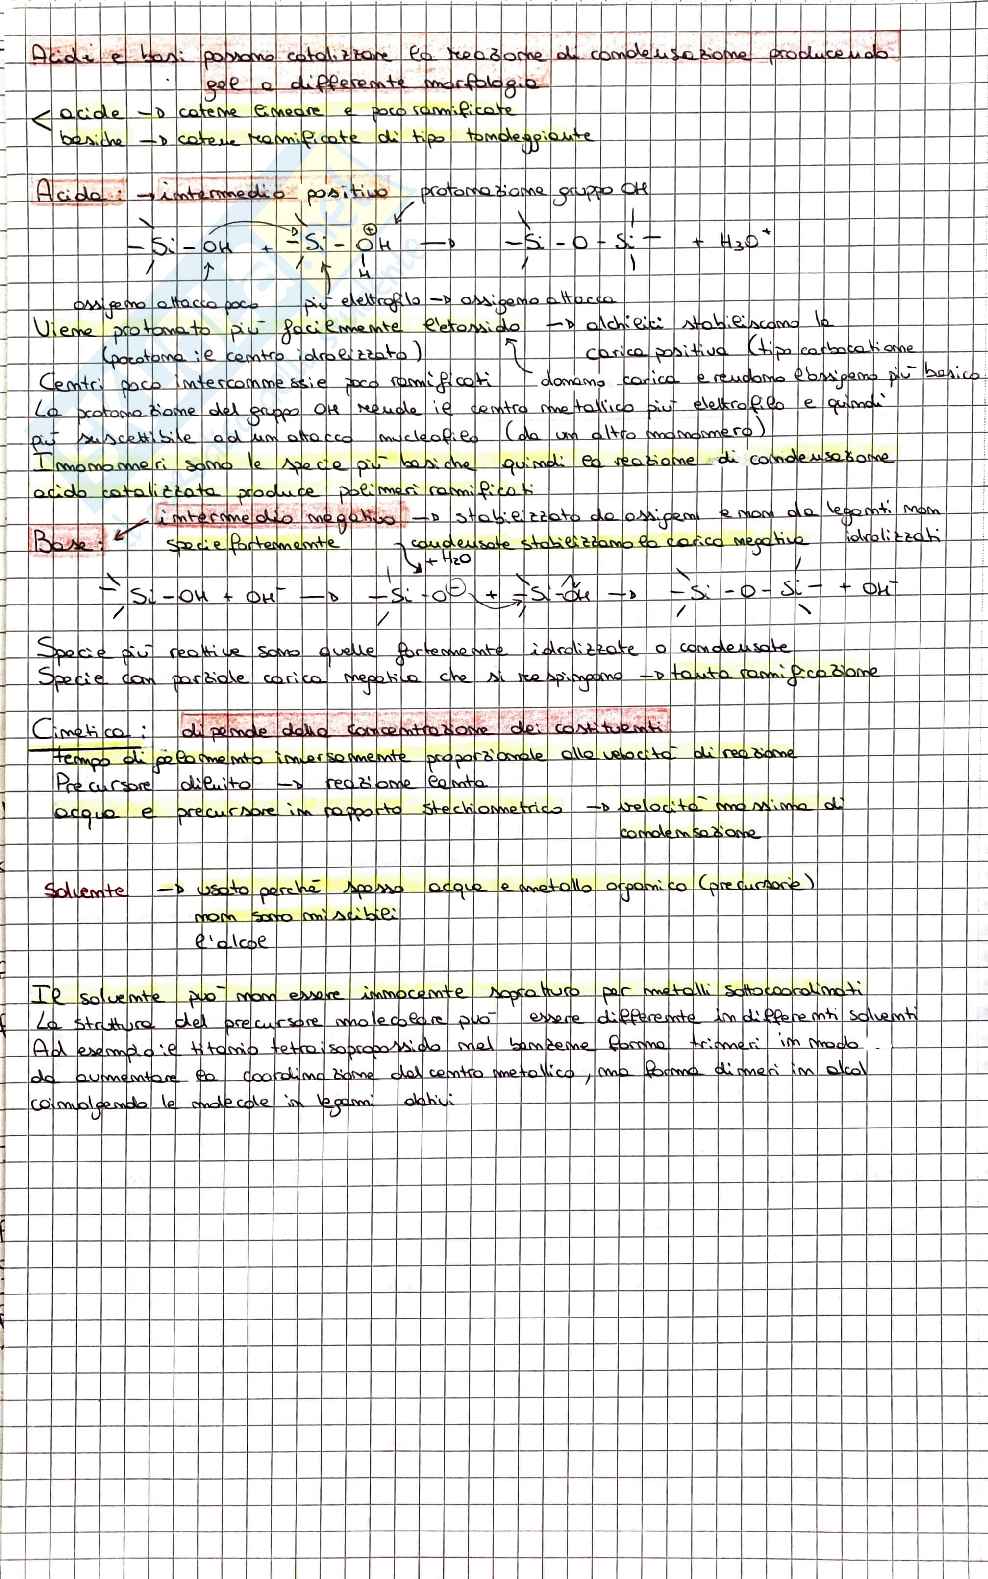 Acidi e basi possono catalizzare la reazione di condensazione producendo
gel a differente morfologia
acide → catene lineare e poco ramificate
basiche → catene ramificate di tipo tondeggiante
Acido: → intermedio positivo protonazione gruppo OH
-Si-OH + -Si-OH → -Si-O-Si- + H3O+
⊕
H
ossigeno attacca poco più elettrofilo → ossigeno attacca
Viene protonato più facilmente l'etossido → alchilici stabiliscono la
(protona il centro idrolizzato) carica positiva (tipo carbocatione
Centri poco interconnessi e poco ramificati donano carica e rendono l'ossigeno più basico
La protonazione del gruppo OH rende il centro metallico più elettrofilo e quindi
più suscettibile ad un attacco nucleofilo (da un altro monomero)
I monomeri sono le specie più basiche quindi la reazione di condensazione
acido catalizzata produce polimeri ramificati
intermedio negativo → stabilizzato da ossigeni e non da leganti non
Base: specie fortemente condensate stabilizzano la carica negativa idrolizzati
+ H2O
-Si-OH + OH- → -Si-O⊖ + -Si-OH → -Si-O-Si- + OH-
Specie più reattive sono quelle fortemente idrolizzate o condensate
Specie con parziale carica negativa che si respingono → tanta ramificazione
Cinetica: dipende dalla concentrazione dei costituenti
tempo di gelamento inversamente proporzionale alla velocità di reazione
Precursore diluito → reazione lenta
acqua e precursore in rapporto stechiometrico → velocità massima di
condensazione
Solvente → usato perché spesso acqua e metallo organico (precursorie)
non sono miscibili
l'alcol
Il solvente può non essere innocente sopratturo per metalli sottocoordinati
La struttura del precursore molecolare può essere differente in differenti solventi
Ad esempio il titanio tetraisopropossido nel benzene forma trimeri in modo
da aumentare la coordinazione del centro metallico, ma forma dimeri in alcol
coinvolgendo le molecole in legami dativi